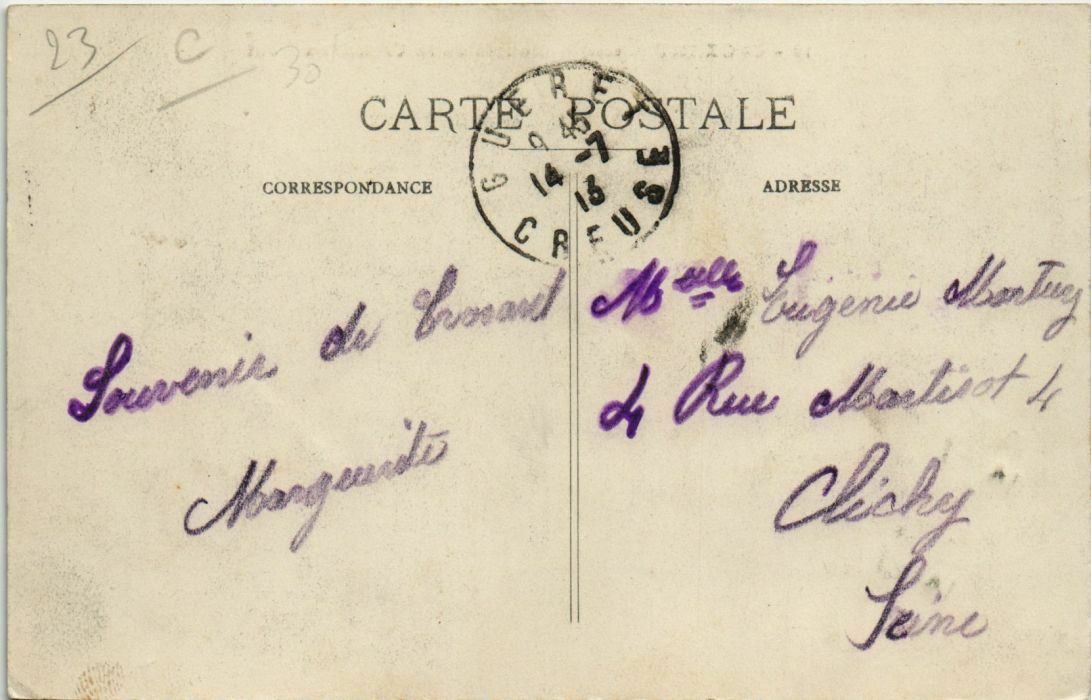 23 C
30
CARTE POSTALE
GUERET
9 45
14 -7
13
CREUSE
CORRESPONDANCE
ADRESSE
Souvenir de
Marguerite
Melle Eugénie
4 Rue 4
Clichy
Seine